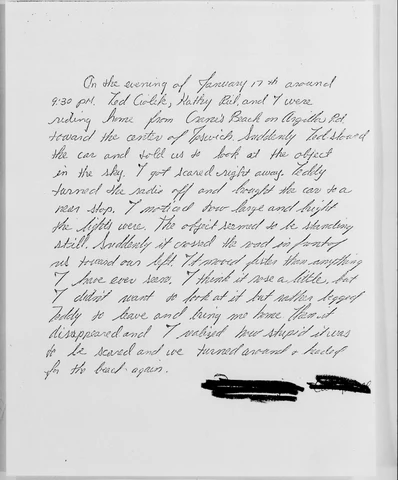 On the evening of January 17th around
9:30 P.M. Ted Ciolek, Kathy and I were
riding home from Crane's Beach on Argilla Rd.
toward the center of Ipswich. Suddenly Ted slowed
the car and told us to look at the object
in the sky. I got scared right away. Teddy
turned the radio off and bought the car to a
near stop. I noticed how large and bright
the lights were. The object seemed to be standing
still. Suddenly it crossed the road in front of
us toward our left. It moved faster than anything
I have ever seen. I think it rose a little, but
I didn't want to look at it but rather begged
Teddy to leave and bring me home. Then it
disappeared and I realized how stupid it was
to be scared and we turned around & headed
for the beach again.